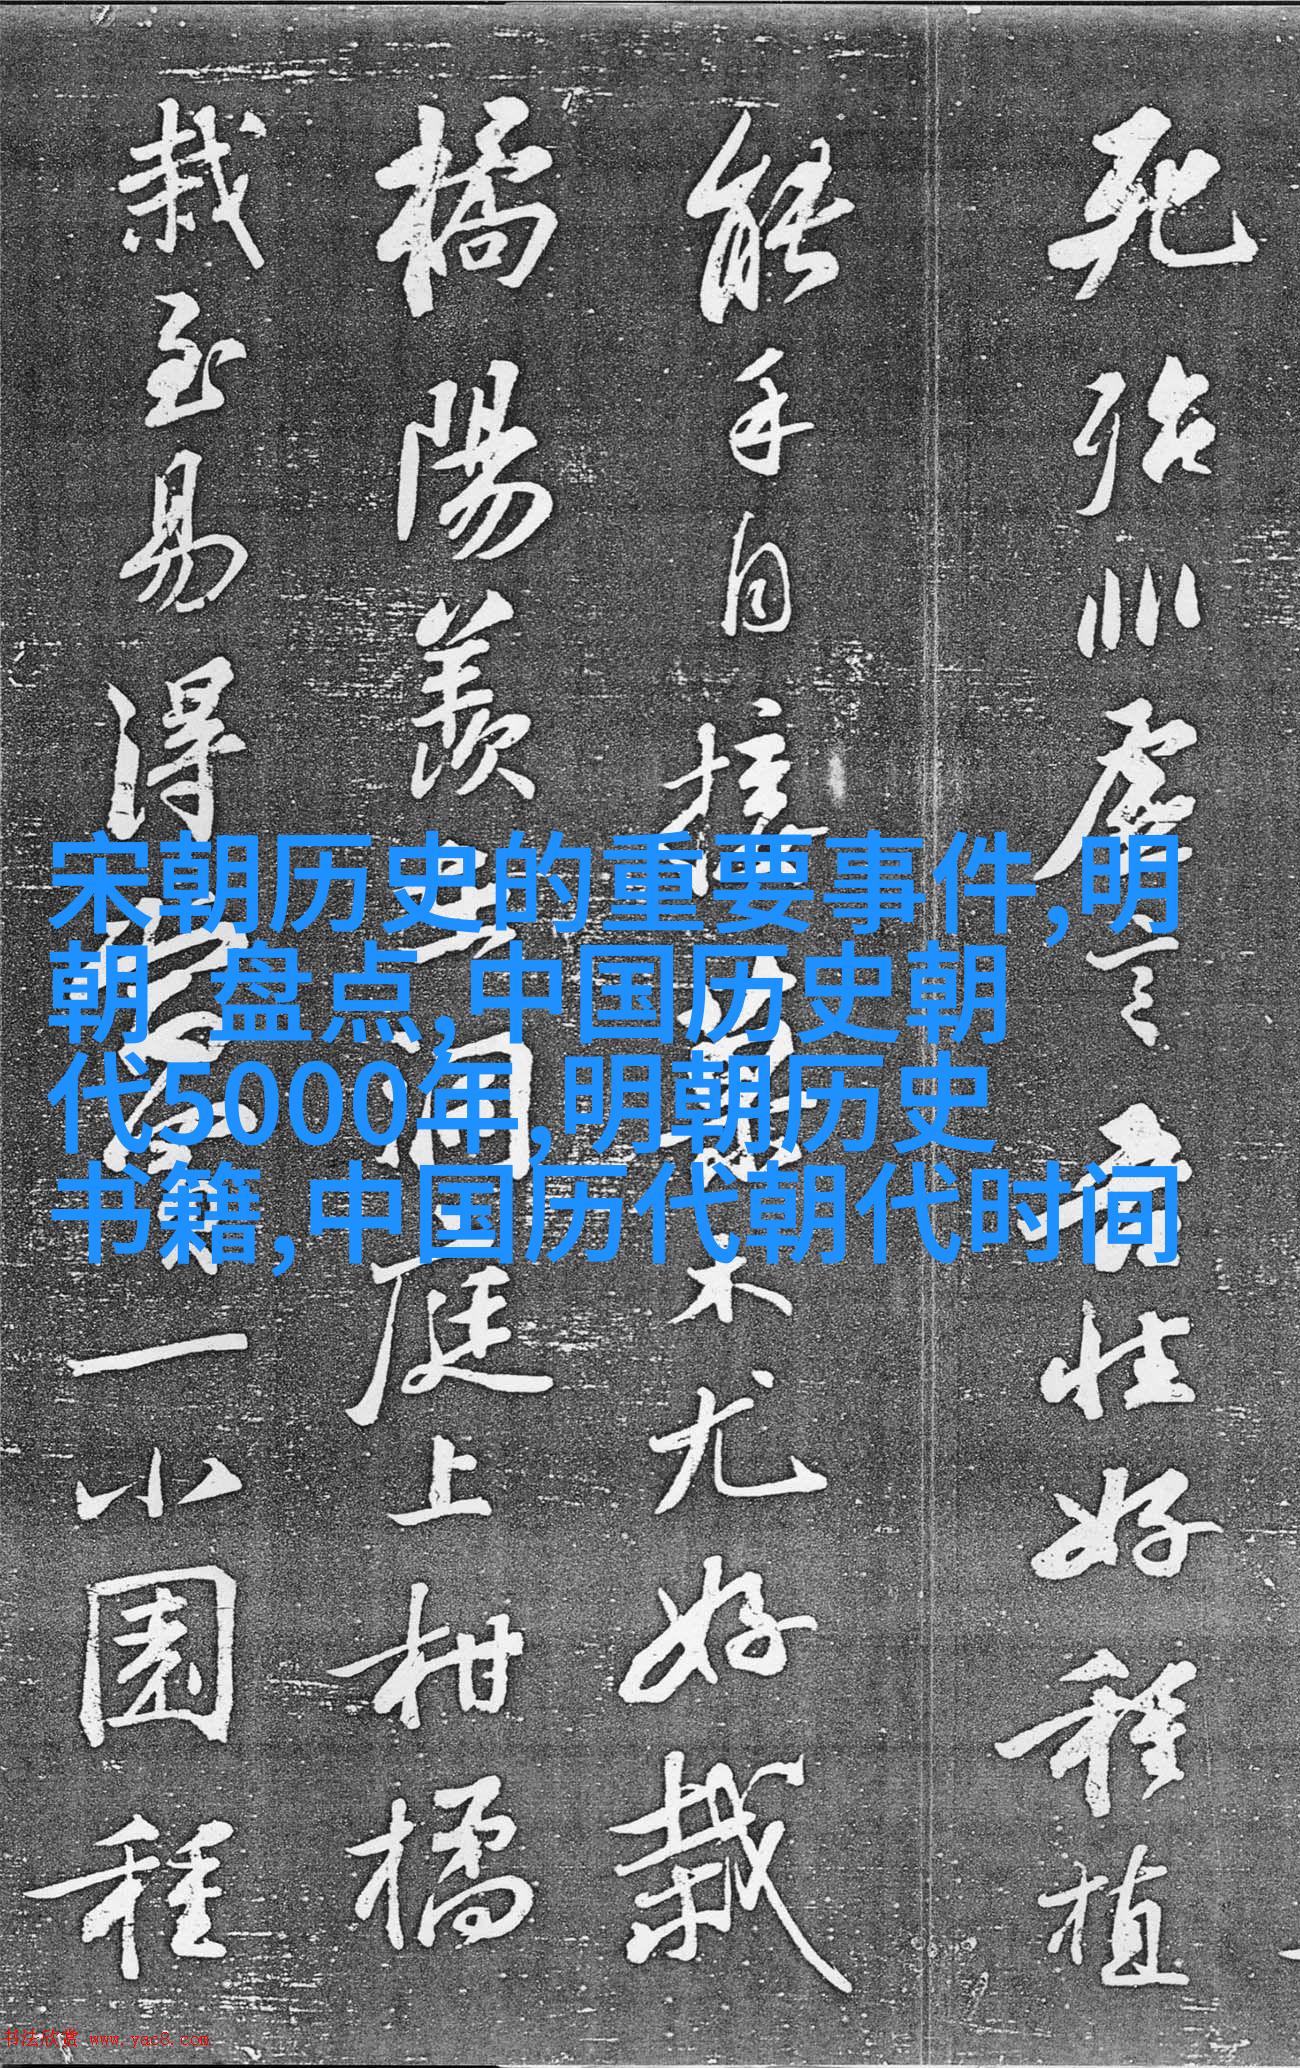 宋朝历史的重要事件,明
朝 盘点,中国历史朝
代5000年,明朝历史
书籍,中国历代朝代时间
死殆非虛言吾性好種植
能手自接果木尤好栽
橘陽羨在洞庭上柑橘
栽至易得當買一小園種
书法欣赏 www.yac8.com